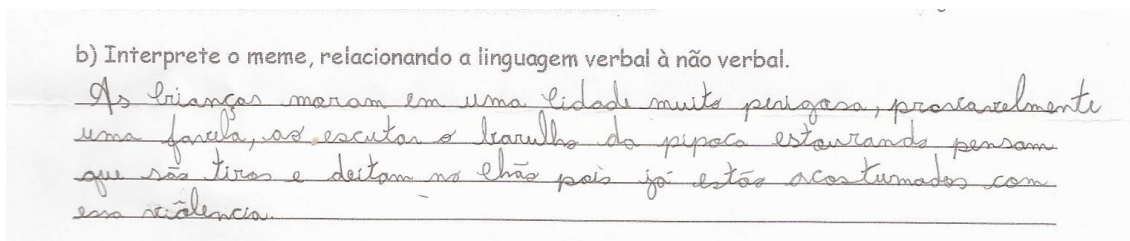 b) Interprete o meme, relacionando a linguagem verbal à não verbal.
As crianças moram em uma cidade muito perigosa, provavelmente
uma favela, ao escutar o barulho da pipoca estourando pensam
que são tiros e deitam no chão pois já estão acostumados com
essa violencia.